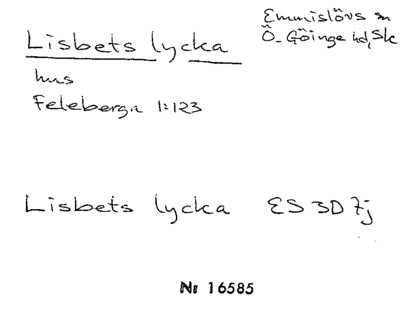 Lisbets lycka
Emmislövs sn
Ö. Göinge hd, Sk
hus
Feleberga 1:123
Lisbets lycka ES 3D 7j
Nr 16585